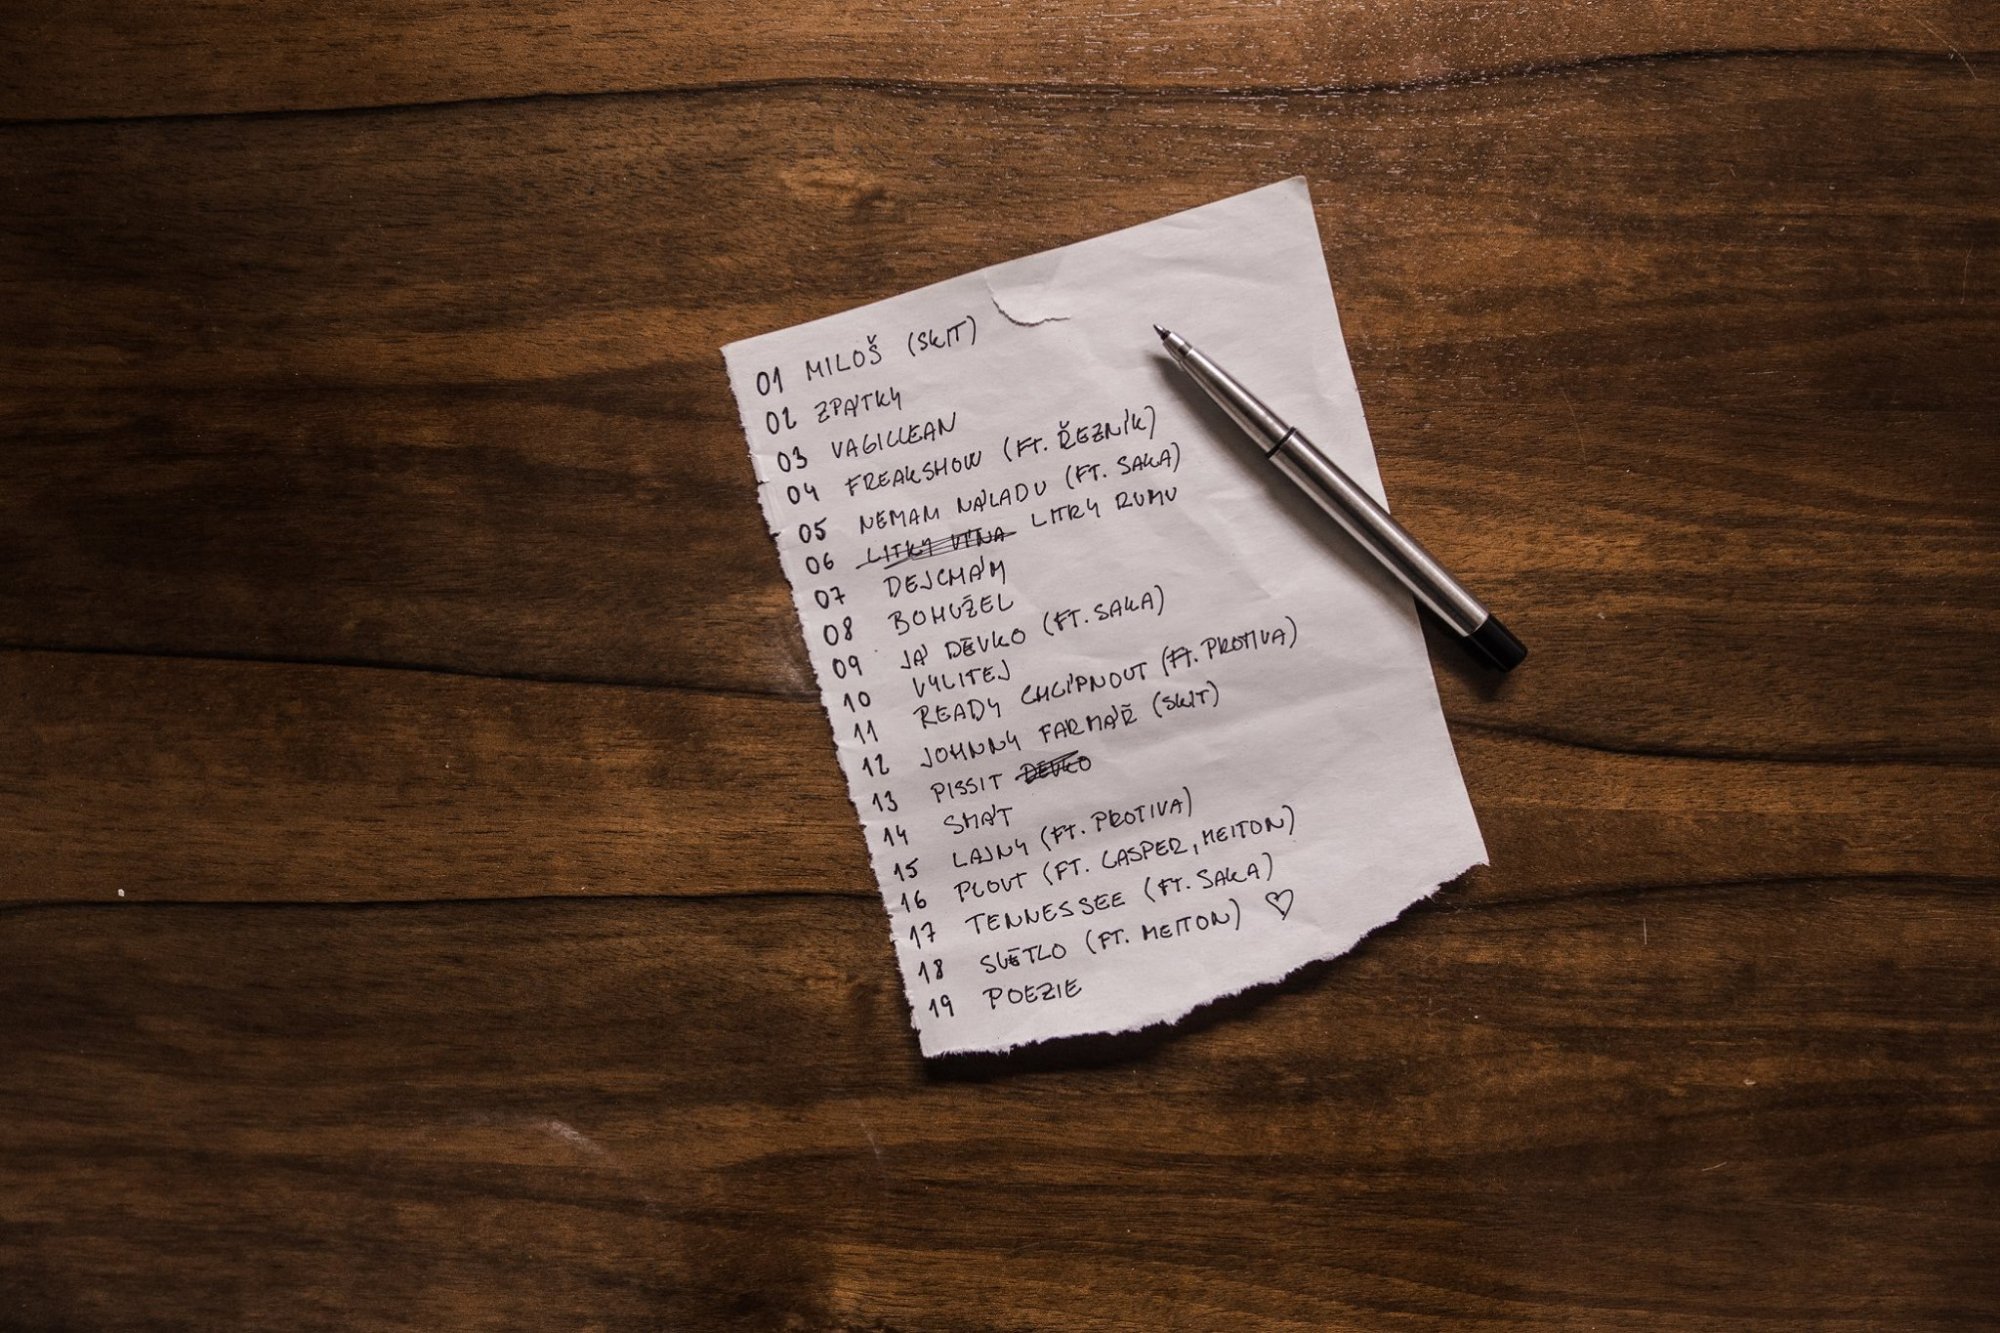 01 MILOŠ (SKIT)
02 ZPÁTKY
03 VAGICLEAN
04 FREAKSHOW (FT. ŘEZNÍK)
05 NEMAM NÁLADU (FT. SAKA)
06 LITRY VÍNA LITRY RUMU
07 DEJCHÁM
08 BOHUŽEL
09 JÁ DĚVKO (FT. SAKA)
10 VYLITEJ
11 READY CHCÍPNOUT (FT. PROTIVA)
12 JOHNNY FARMÁŘ (SKIT)
13 PISSIT DEVKO
14 SMÁT
15 LAJNY (FT. PROTIVA)
16 PLOUT (FT. CASPER, MEITON)
17 TENNESSEE (FT. SAKA)
18 SVĚTLO (FT. MEITON) ♡
19 POEZIE